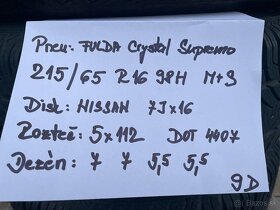 Pneu: FULDA Crystal Supremo
215/65 R16 98H M+S
Disk: NISSAN 7Jx16
Rozteč: 5x112 DOT 4407
Dezén: 7 7 5,5 5,5
9D
Bazos.sk